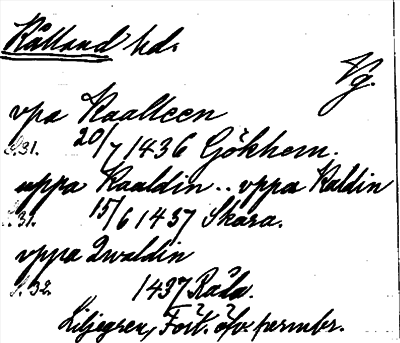 Kålland hd.
Vg.
vpa Kaalleen
S.31. 20/7 1436 Gökhem.
uppa Kaaldin .. vppa Kaldin
S.31. 15/6 1437 Skara.
vppa Qwaldin
S.32. 1437 Råda.
Liljegren, Fört. öfv. permbr.